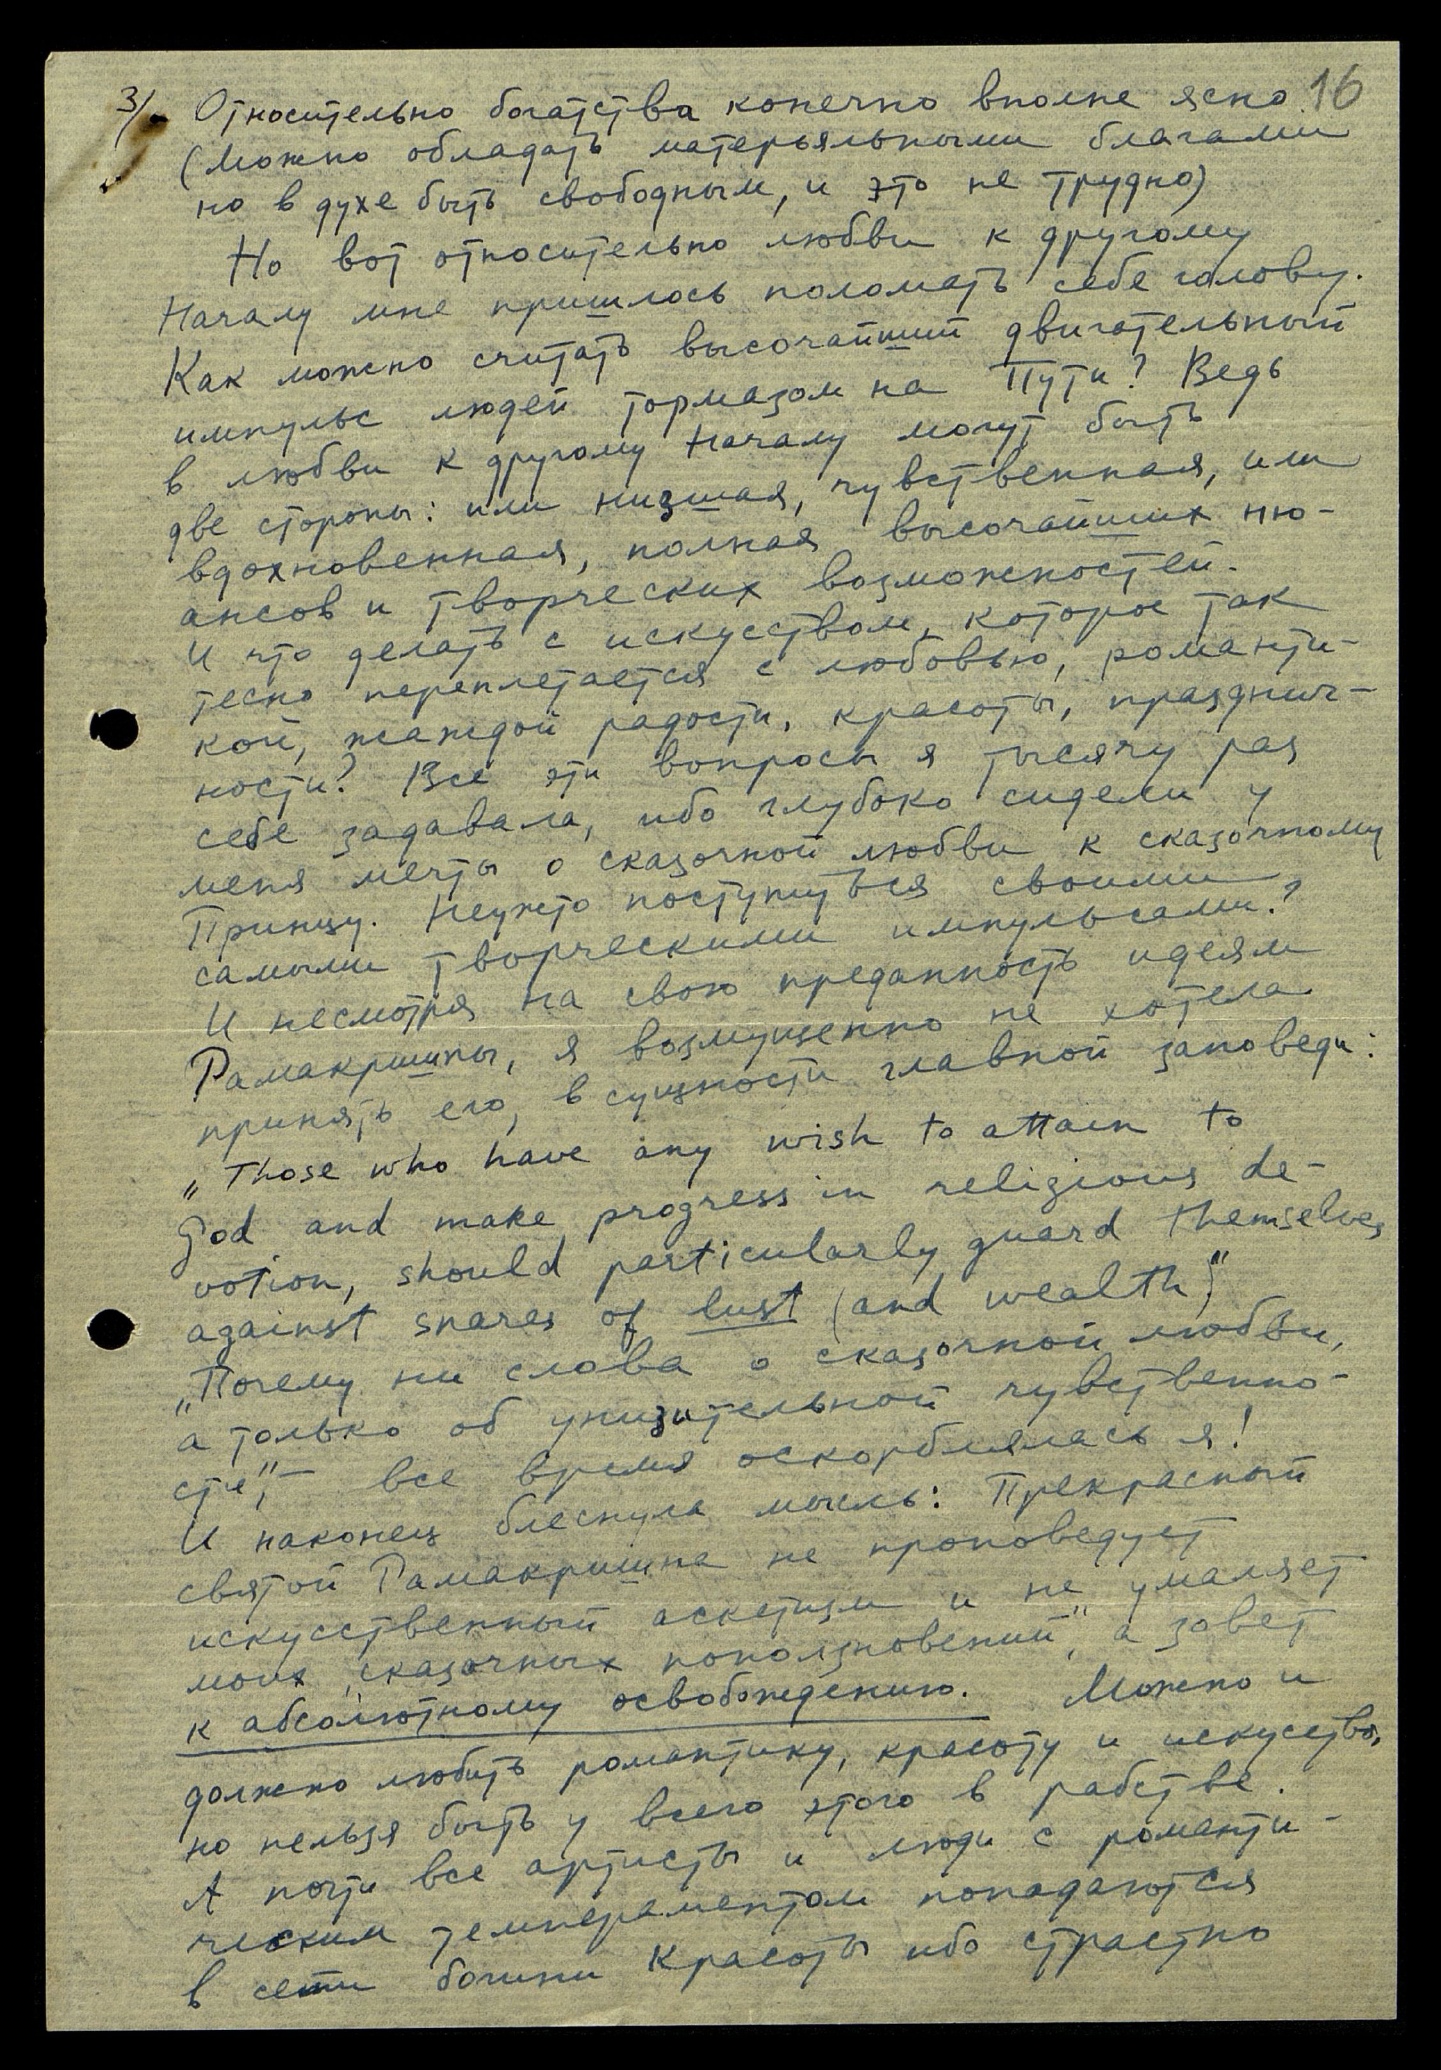 3/. Относительно богатства конечно вполне ясно. 16
(Можно обладать матерьяльными благами
но в духе быть свободным, и это не трудно)
Но вот относительно любви к другому
Началу мне пришлось поломать себе голову.
Как можно считать высочайший двигательный
импульс людей тормазом на Пути? Ведь
в любви к другому Началу могут быть
две стороны: или низшая, чувственная, или
вдохновенная, полная высочайших ню-
ансов и творческих возможностей.
И что делать с искусством, которое так
тесно переплетается с любовью, романти-
кой, жаждой радости, красоты, празднич-
ности? Все эти вопросы я тысячу раз
себе задавала, ибо глубоко сидели у
меня мечты о сказочной любви к сказочному
Принцу. Неужто поступиться своими
самыми творческими импульсами?
И несмотря на свою преданность идеям
Рамакришны, я возмущенно не хотела
принять его, в сущности главной заповеди:
„Those who have any wish to attain to
God and make progress in religious de-
votion, should particularly guard themselves
against snares of lust (and wealth)."
„Почему ни слова о сказочной любви,
а только об унизительной чувственно-
сти", — все время оскорблялась я!
И наконец блеснула мысль: Прекрасный
святой Рамакришна не проповедует
искусственный аскетизм и не умаляет
моих „сказочных поползновений", а зовет
к абсолютному освобождению. Можно и
должно любить романтику, красоту и искусство,
но нельзя быть у всего этого в рабстве.
А почти все артисты и люди с романти-
ческим темпераментом попадаются
в сети богини Красоты ибо страстно